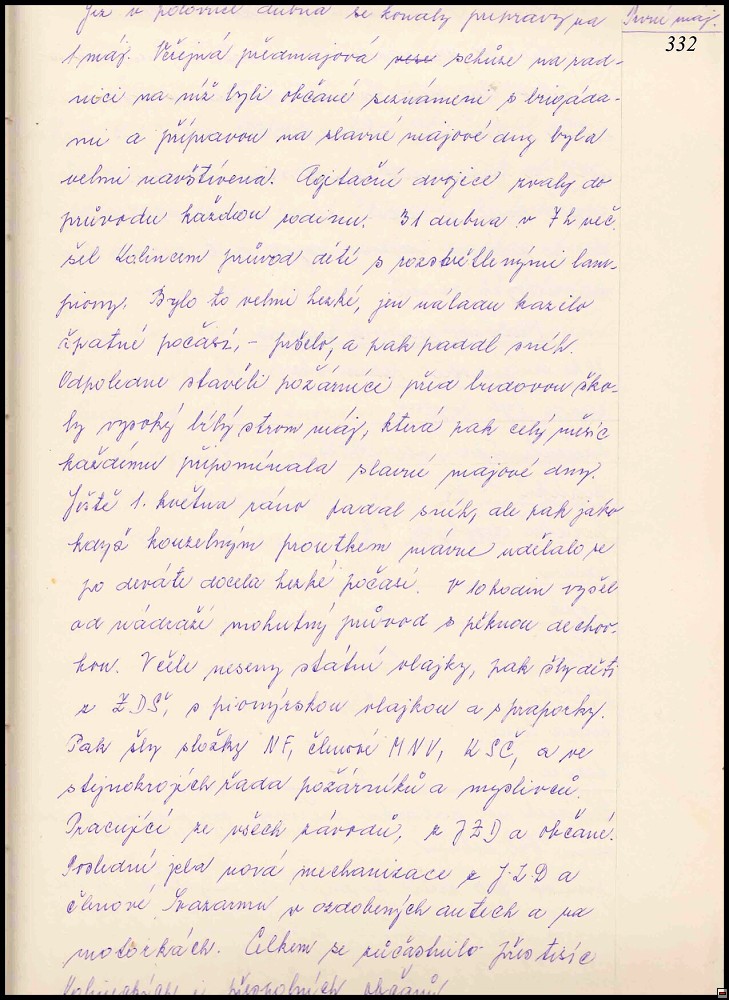 Již v polovině dubna se konaly přípravy na
První máj.
332
1 máj. Veřejná předmájová schůze na rad-
nici na níž byli občané seznámeni s brigáda-
mi a přípravou na slavné májové dny byla
velmi navštívena. Agitační dvojice zvaly do
průvodu každou rodinu. 31 dubna v 7 h več.
šel Kolincem průvod dětí s rozsvětlenými lam-
piony. Bylo to velmi hezké, jen náladu kazilo
špatné počasí, – pršelo, a pak padal sníh.
Odpoledne stavěli požárníci před budovou ško-
ly vysoký bílý strom máj, která pak celý měsíc
každému připomínala slavné májové dny.
Ještě 1. května ráno padal sníh, ale pak jako
když kouzelným proutkem mávne udělalo se
po deváté docela hezké počasí. V 10 hodin vyšel
od nádraží mohutný průvod s pěknou dechov-
kou. V čele neseny státní vlajky, pak šly děti
z ZDŠ, s pionýrskou vlajkou a s praporky.
Pak šly složky NF, členové MNV, KSČ, a ve
stejnokrojích řada požárníků a myslivců.
Pracující ze všech závodů, z JZD a občané.
Poslední jela nová mechanizace z J.Z.D a
členové Svazarmu v ozdobených autech a na
motorkách. Celkem se zúčastnilo přes tisíc
Kolineckých i přespolních občanů